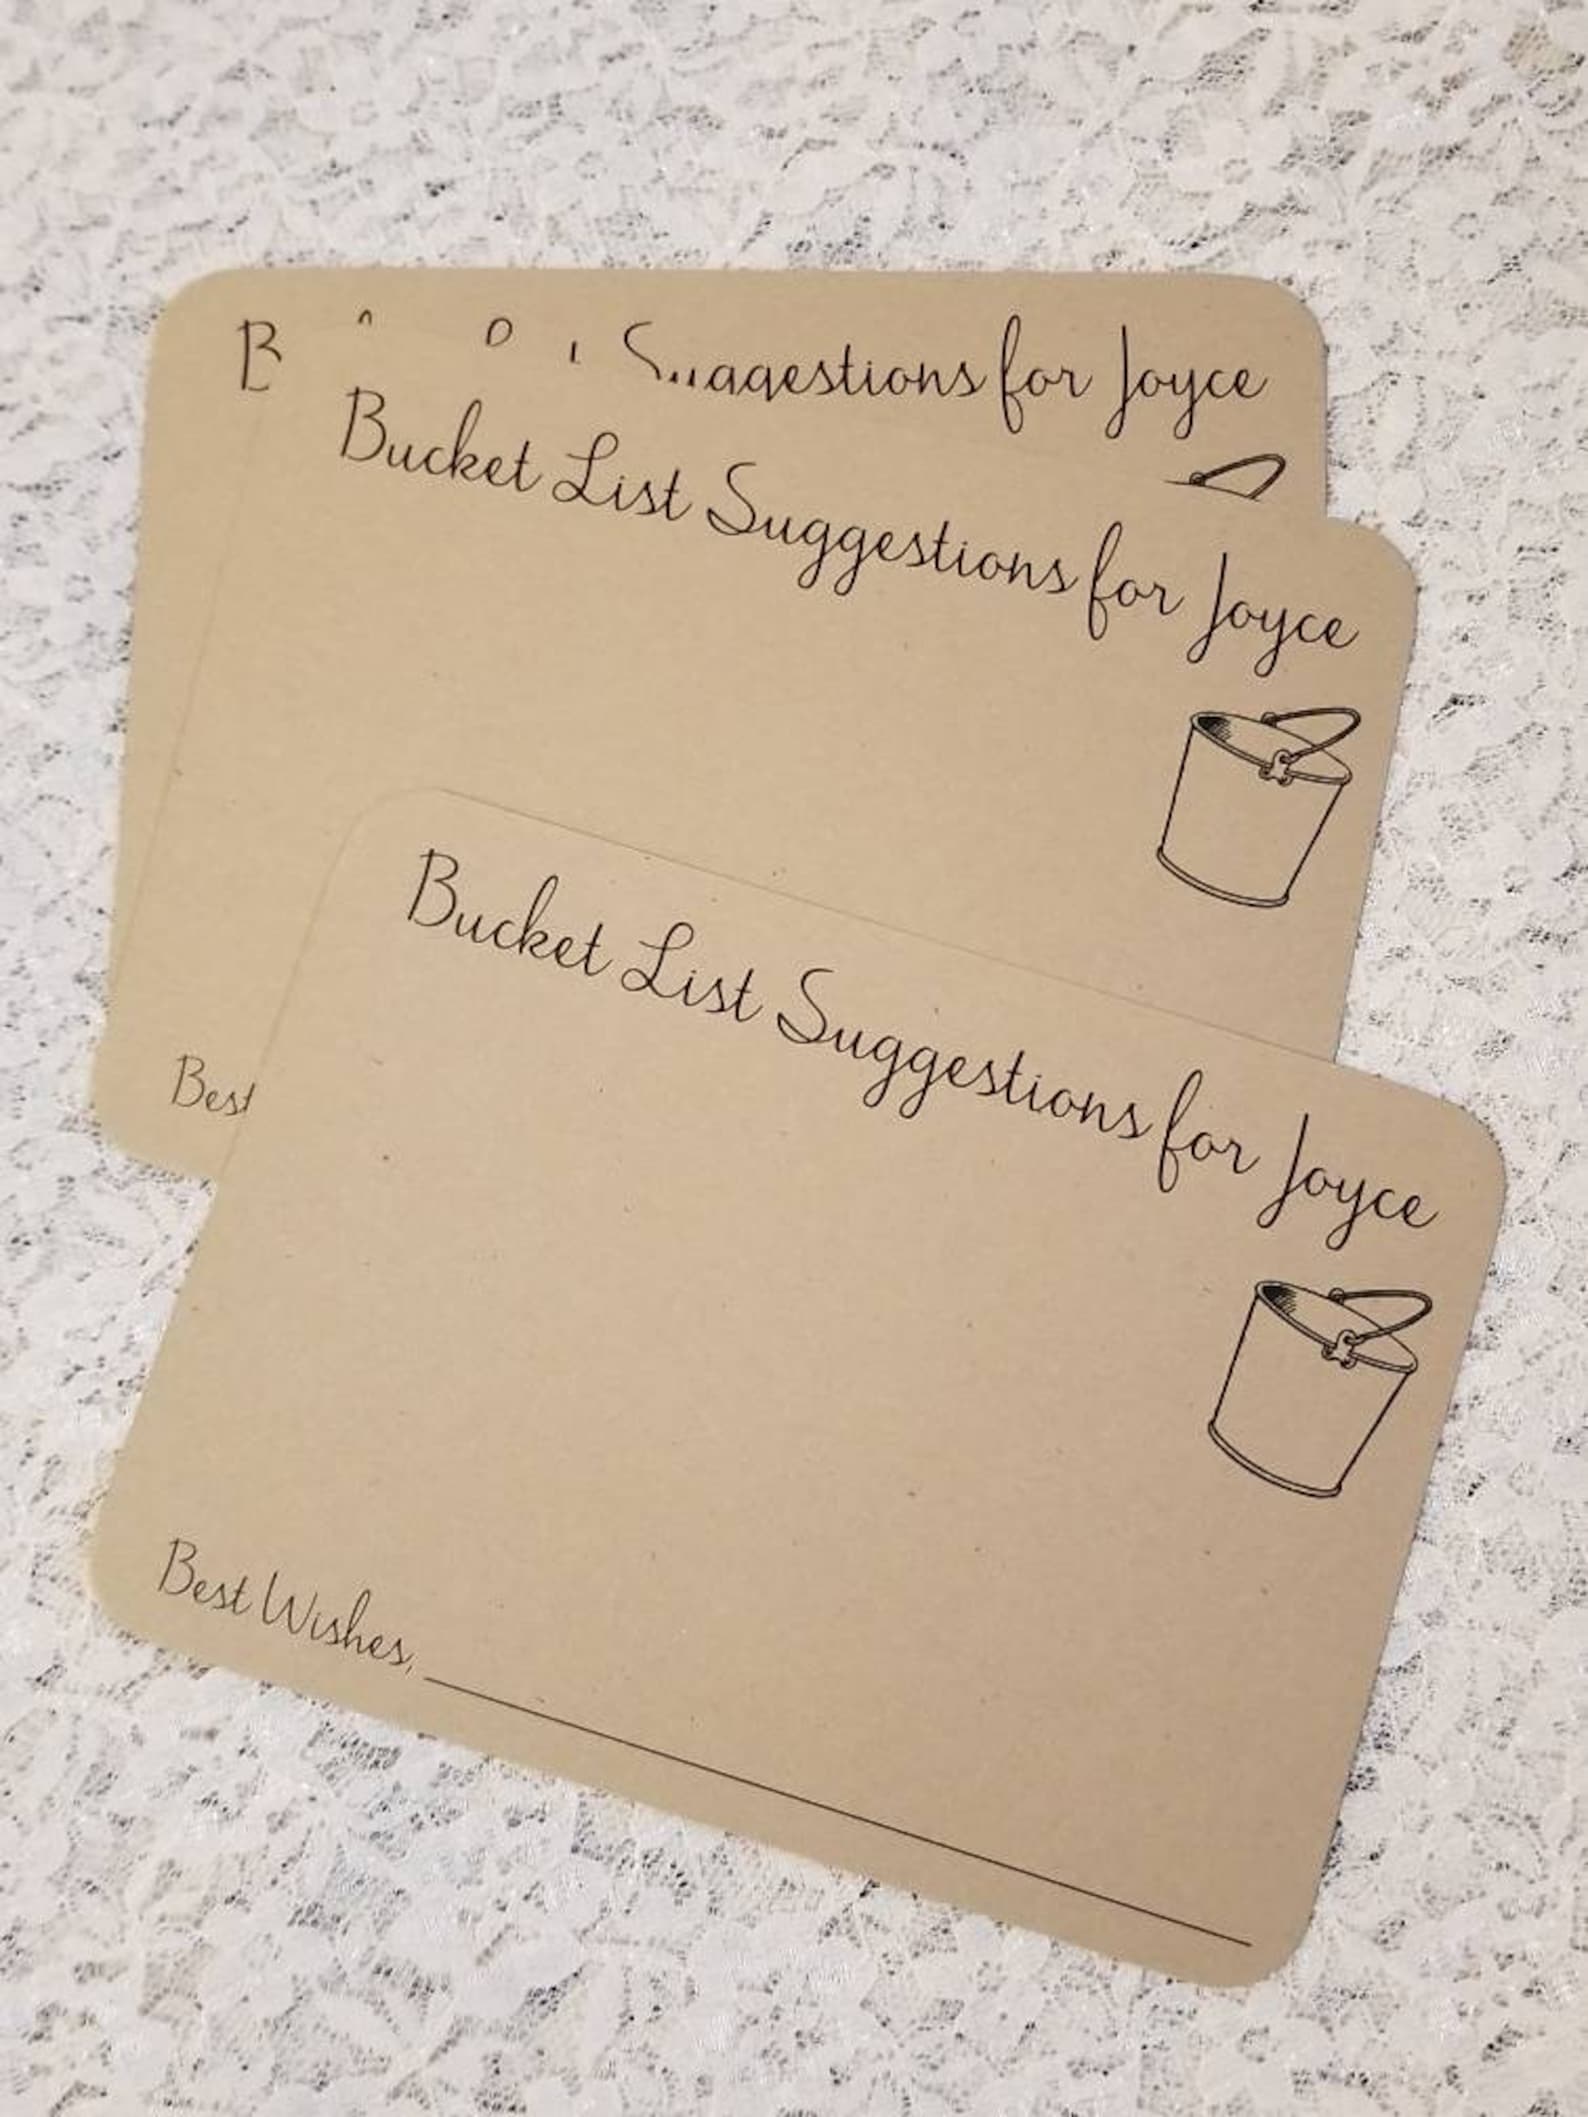 B Suggestions for Joyce
Bucket List Suggestions for Joyce
Best
Bucket List Suggestions for Joyce
Best Wishes,